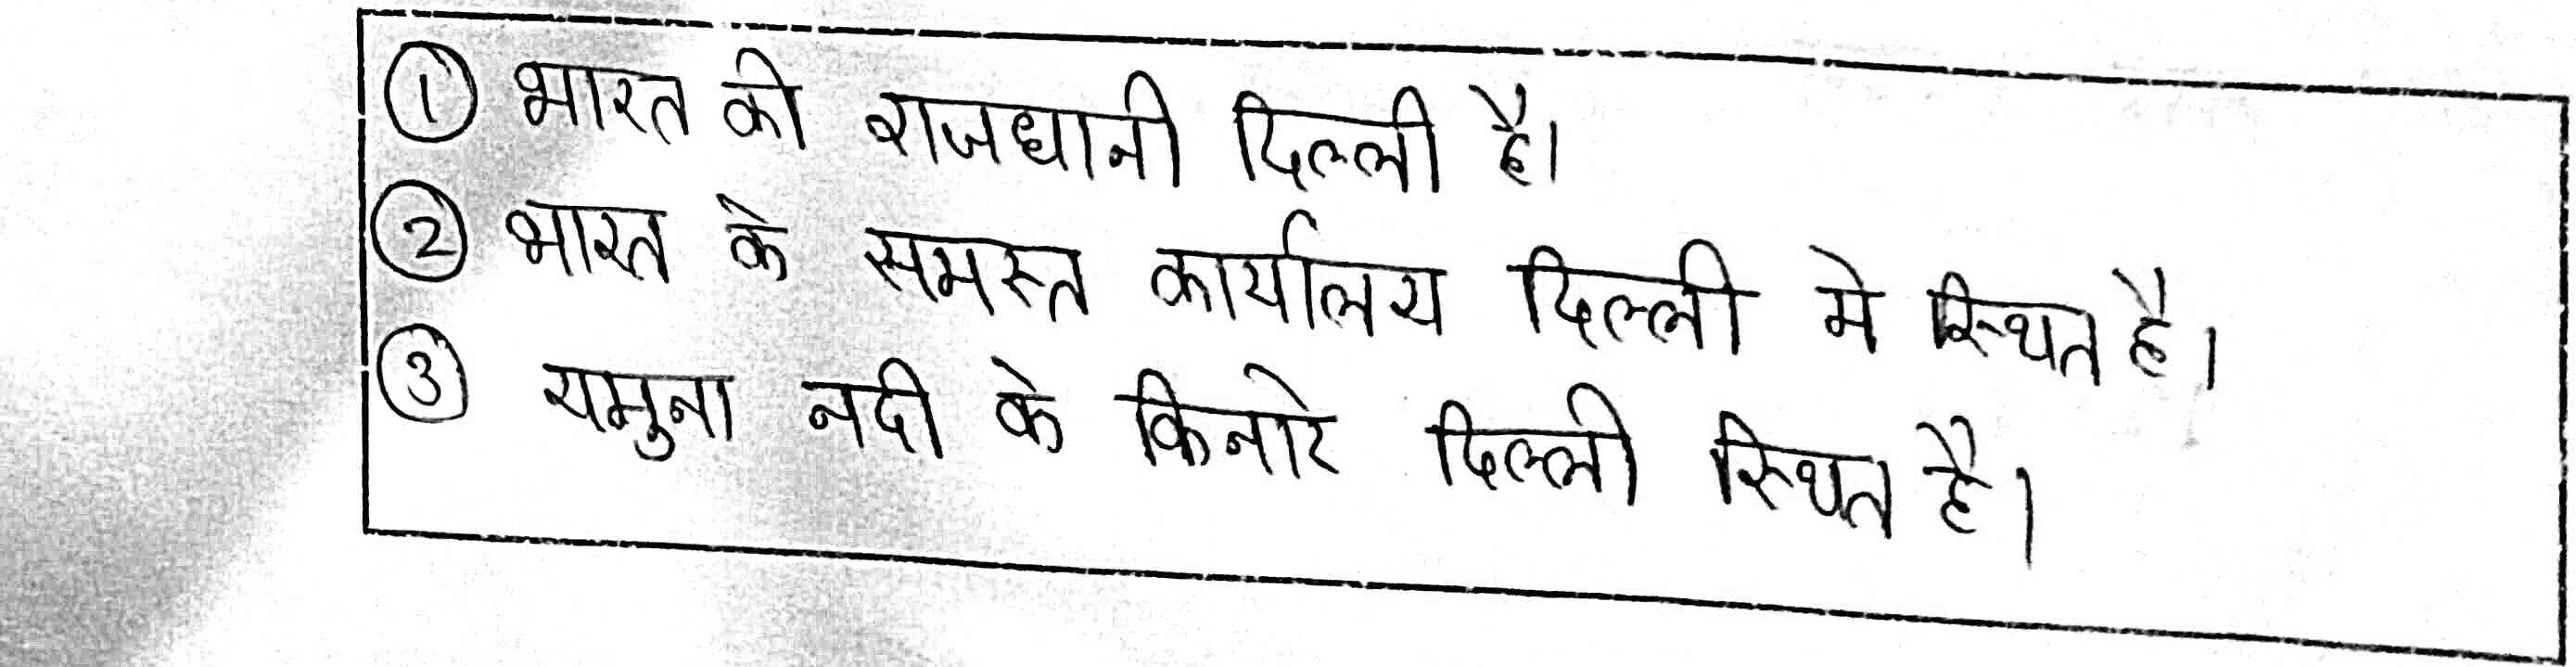 ① भारत की राजधानी दिल्ली है।
② भारत के समस्त कार्यालय दिल्ली मे स्थित है।
③ यमुना नदी के किनारे दिल्ली स्थित है।